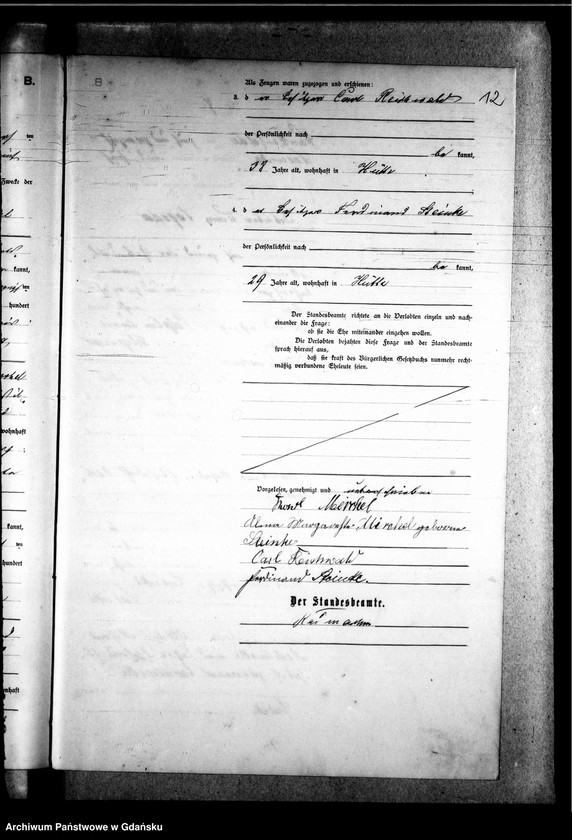 B.
12
Als Zeugen waren zugezogen und erschienen:
3. der Besitzer Carl Reichwald
der Persönlichkeit nach
be kannt,
38 Jahre alt, wohnhaft in Hütte
4. der Besitzer Ferdinand Steinke
der Persönlichkeit nach
be kannt,
29 Jahre alt, wohnhaft in Hütte
Der Standesbeamte richtete an die Verlobten einzeln und nach-
einander die Frage:
ob sie die Ehe miteinander eingehen wollen.
Die Verlobten bejahten diese Frage und der Standesbeamte
sprach hierauf aus,
daß sie kraft des Bürgerlichen Gesetzbuchs nunmehr recht-
mäßig verbundene Eheleute seien.
Vorgelesen, genehmigt und unterschrieben
Mirchel
Margarethe Mirchel geborene
Steinke
Carl Reichwald
Ferdinand Steinke.
Der Standesbeamte.
Zwecke der
kannt,
hundert
wohnhaft
kannt,
hundert
Archiwum Państwowe w Gdańsku